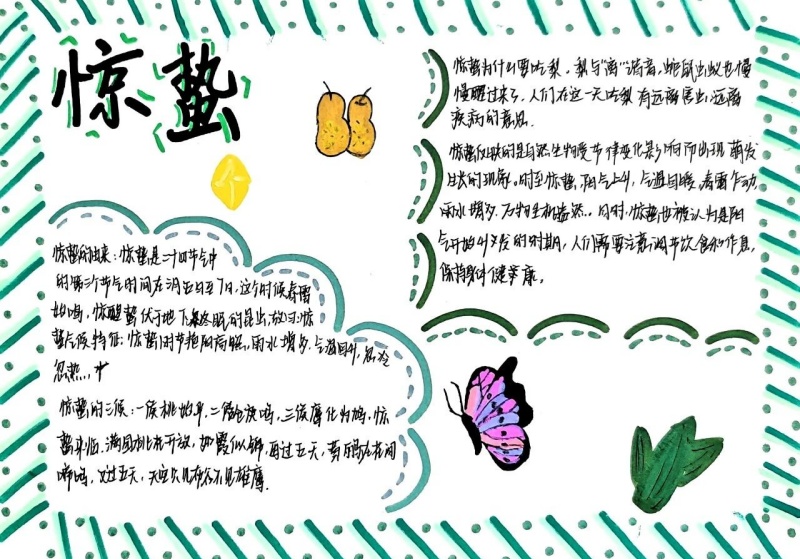 惊蛰
个
惊蛰的由来：惊蛰是二十四节气中
的第三个节气时间在3月5日至7日，这个时候春雷
始鸣，惊醒蛰伏于地下冬眠的昆虫，惊
蛰气候特征：惊蛰时节艳阳高照，雨水增多，气温回升，忽冷
忽热，
惊蛰的三候：一候桃始华，二候仓庚鸣，三候鹰化为鸠，惊
蛰来临，满园桃花开放，如霞似锦，再过五天，黄鹂在花间
啼鸣，又过五天，天空只见布谷不见雄鹰．
惊蛰为什么要吃梨，梨与“离”谐音，蛇鼠虫蚁也慢
慢醒过来了，人们在这一天吃梨有远离害虫，远离
疾病的意思．
惊蛰反映的是自然生物受节律变化影响而出现萌发
生长的现象。时至惊蛰，阳气上升，气温回暖，春雷乍动，
雨水增多，万物生机盎然。同时，惊蛰也被认为是阳
气开始升发的时期，人们需要注意调节饮食和作息，
保持身体健康．